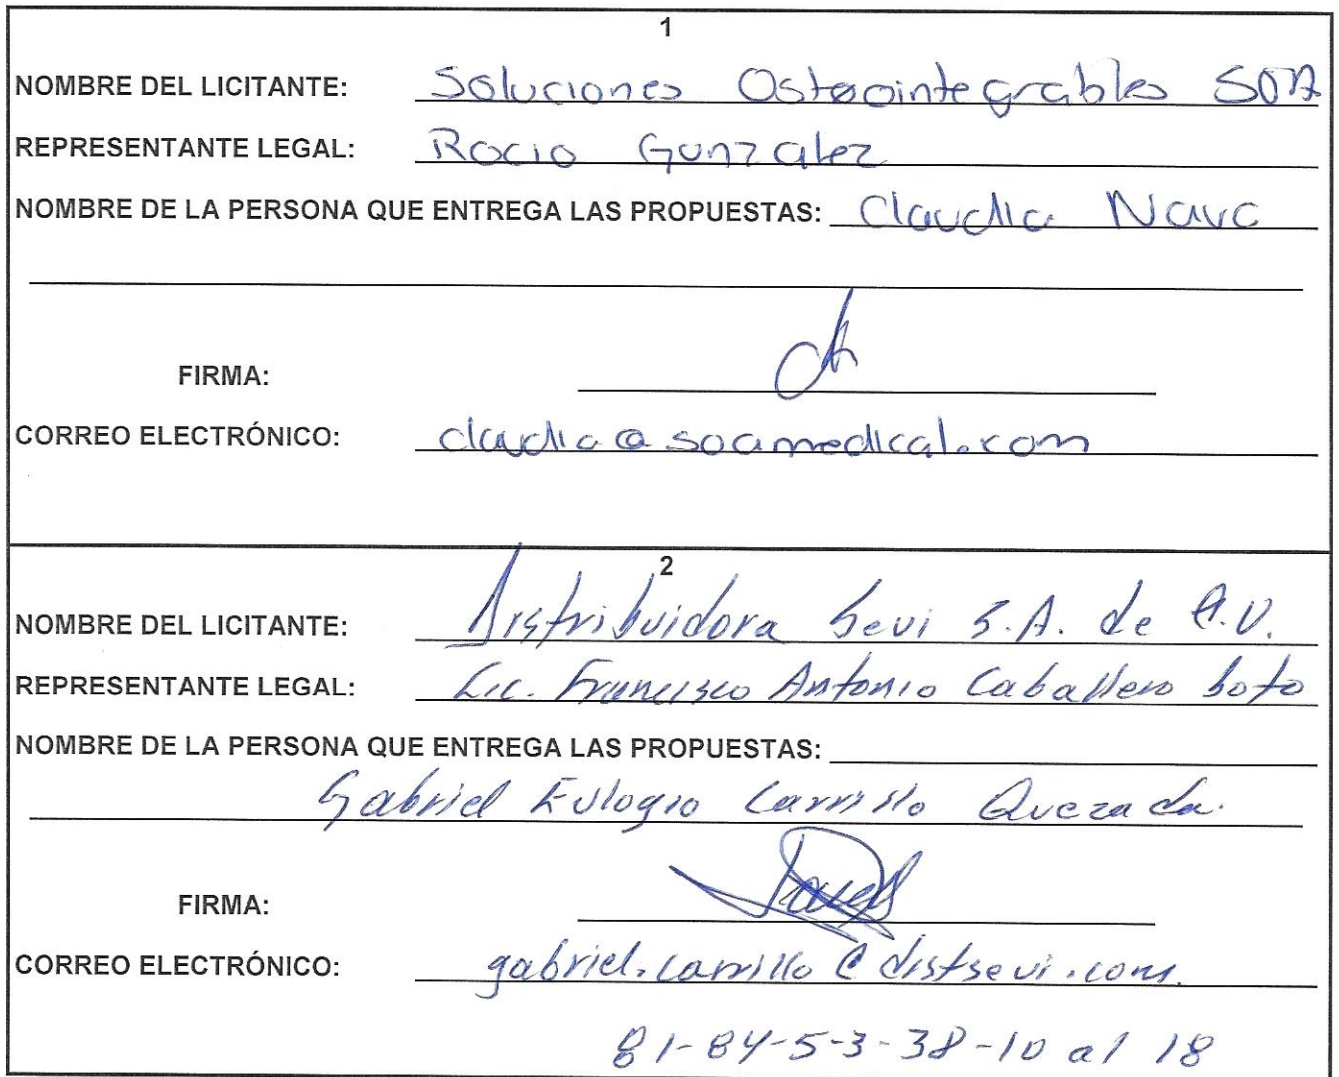 1
NOMBRE DEL LICITANTE: Soluciones Osteointegrables SOA
REPRESENTANTE LEGAL: Rocio Gonzalez
NOMBRE DE LA PERSONA QUE ENTREGA LAS PROPUESTAS: Claudia Nava
FIRMA:
CORREO ELECTRÓNICO: claudia@soamedical.com
2
NOMBRE DEL LICITANTE: Distribuidora Sevi S.A. de C.V.
REPRESENTANTE LEGAL: Lic. Francisco Antonio Caballero Soto
NOMBRE DE LA PERSONA QUE ENTREGA LAS PROPUESTAS:
Gabriel Eulogio Carrillo Quezada.
FIRMA:
CORREO ELECTRÓNICO: gabriel.carrillo@distsevi.com.
81-84-5-3-38-10 al 18